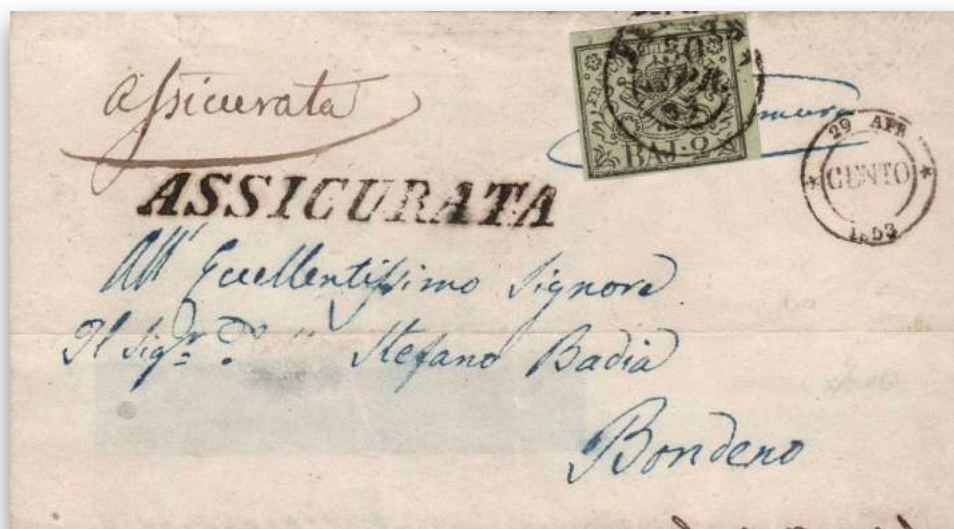 Assicurata
ASSICURATA
BAJ. 2
29 APR
CENTO
1853
All' Eccellentissimo Signore
Il Sigr. Dr. Stefano Badia
Bondeno